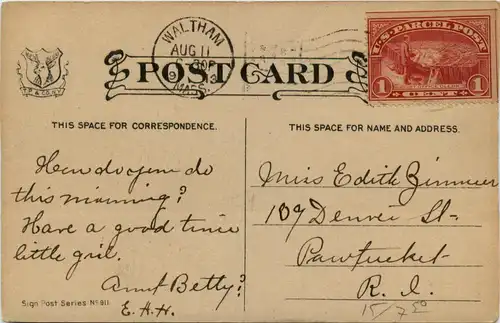 WALTHAM
AUG 11
6-30P
MASS.
U.S. PARCEL POST
1 CENT 1
POST CARD
THIS SPACE FOR CORRESPONDENCE.
THIS SPACE FOR NAME AND ADDRESS.
How do you do
this morning?
Have a good time
little girl.
Aunt Betty?
E.A.H.
Miss Edith
109 Denver St-
Pawtucket
R. I.
15/7 50
Sign Post Series No 811